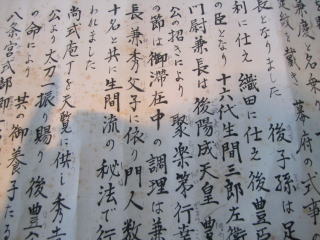 事度と名乗り 幕府の式事の
長となりました 後子孫は足
利に仕え 織田に仕え 後豊臣
の臣となり 十六代生間三郎左衛
門尉兼長は 後陽成天皇 豊
公の招きにより 聚楽第行幸
の節は御滞在中の調理は兼
長兼秀父子に依り 門人数
十名と共に生間流の秘法で行
われました
尚式庖丁を天覧に供し 秀吉
公より太刀一振り賜り 後豊公
の命により 其の御養子たる
八条宮式部卿